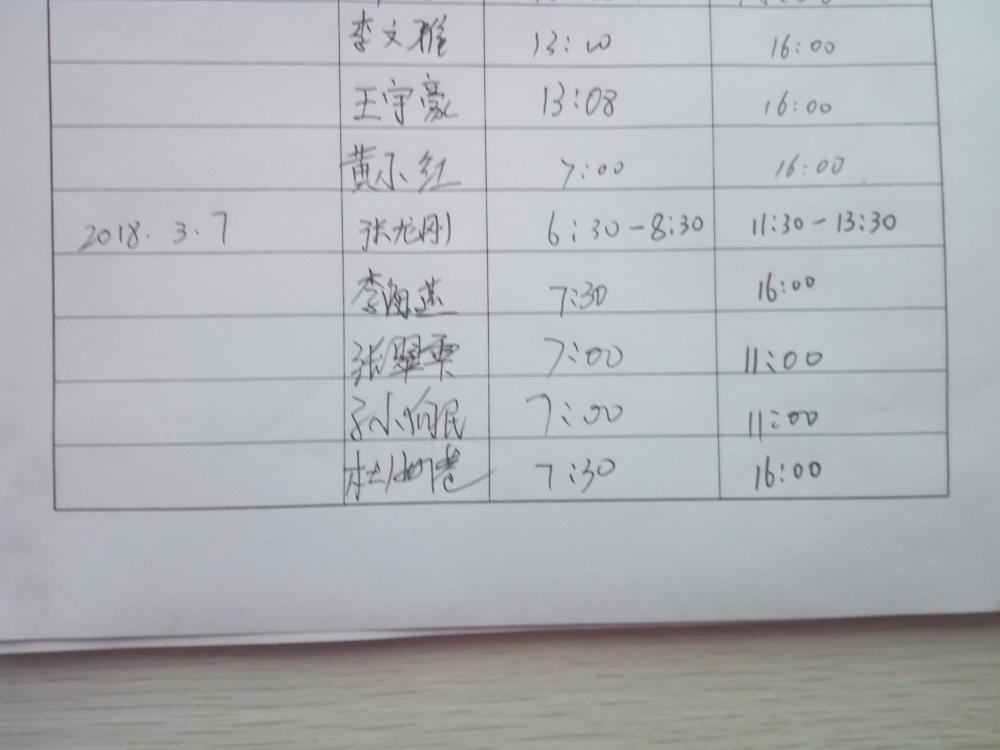 李文雅 13:10 16:00
王宇豪 13:08 16:00
黄小红 7:00 16:00
2018.3.7 张龙刚 6:30-8:30 11:30-13:30
李海燕 7:30 16:00
张翠栗 7:00 11:00
7:00 11:00
7:30 16:00